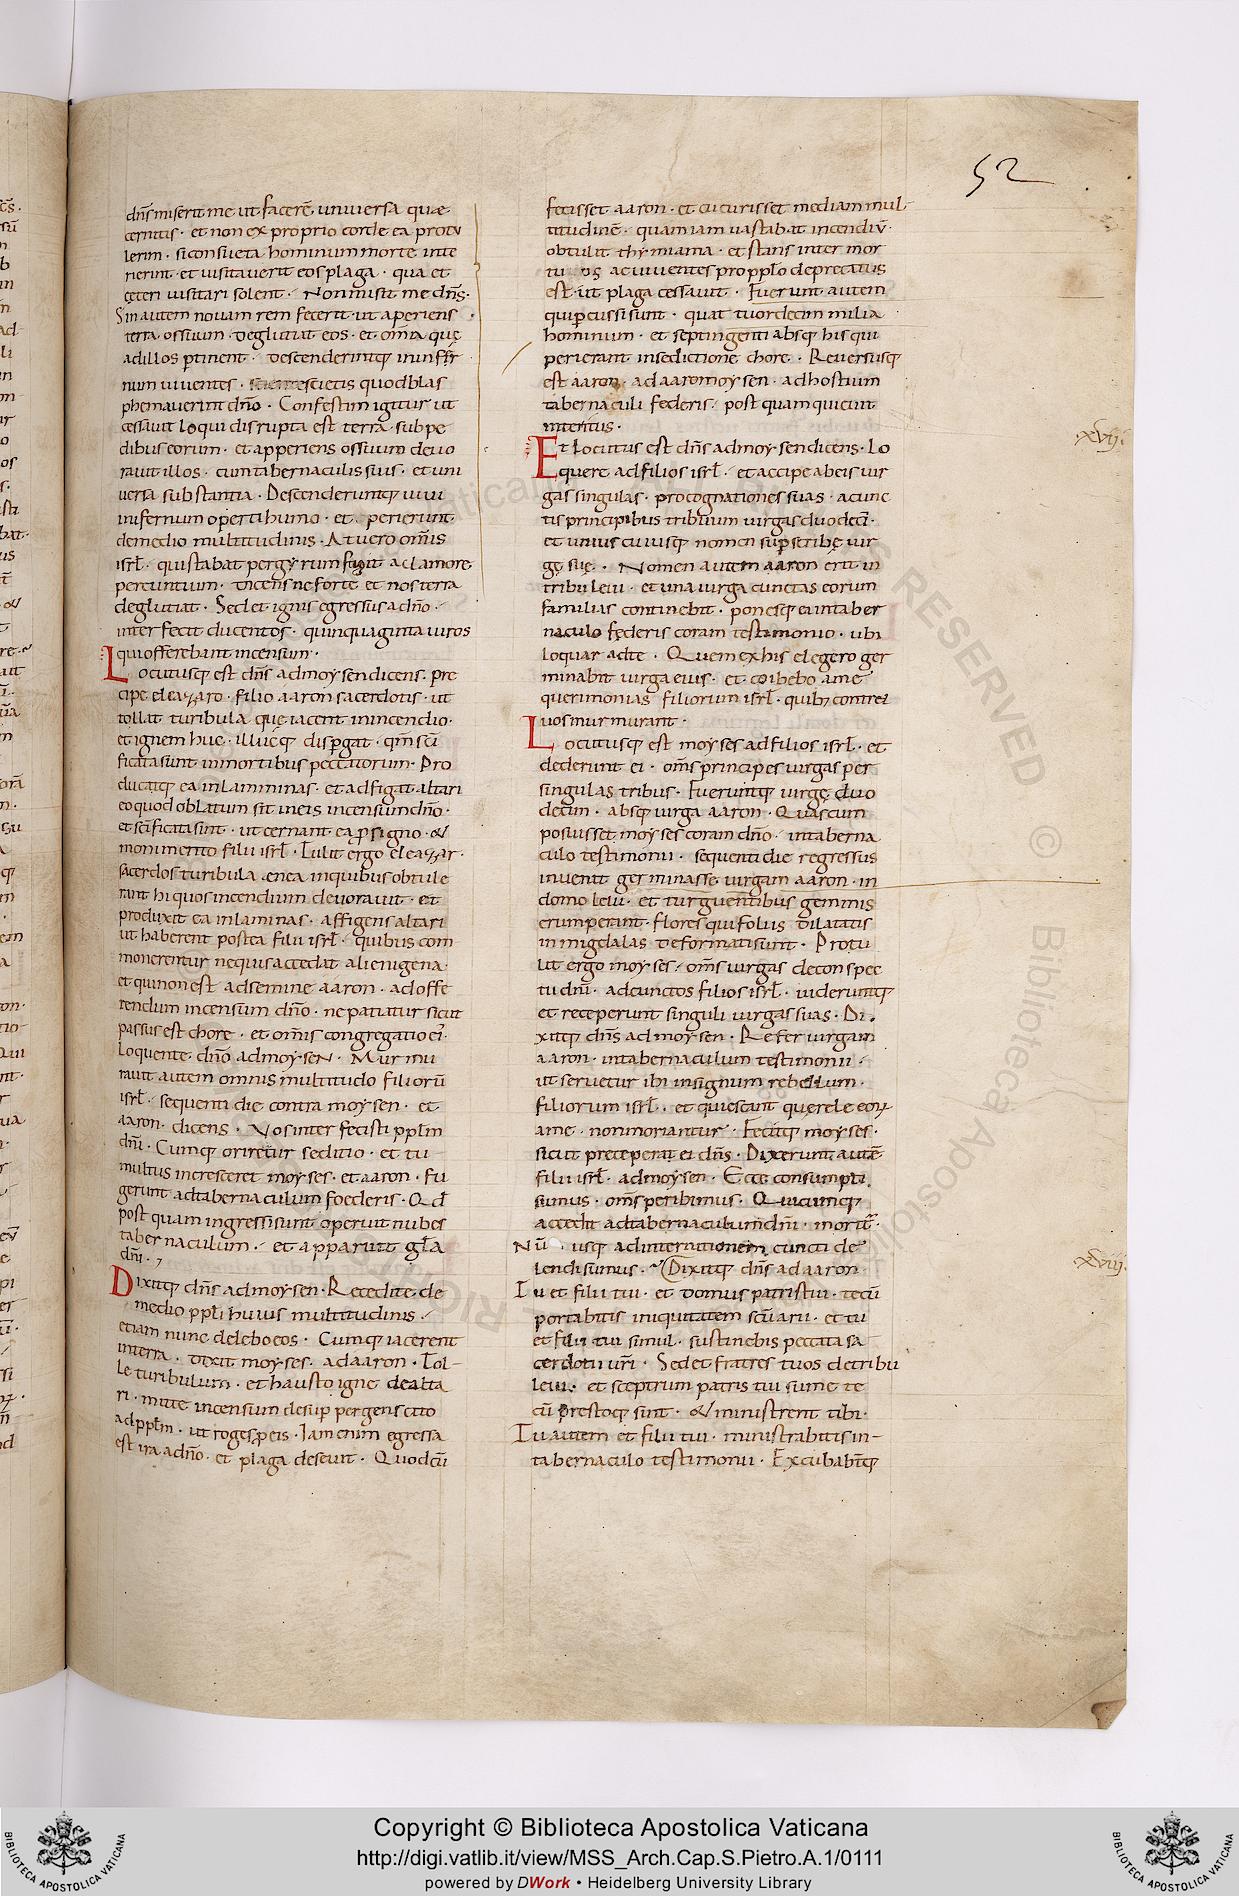 52
dn̄s miserit me ut facerē universa quæ
cernitis · et non ex proprio corde ea protu
lerim · si consueta hominum morte inte
rierint · et visitaverit eos plaga · qua et
ceteri visitari solent · Non misit me dn̄s ·
Sin autem novam rem fecerit · ut aperiens
terra os suum · deglutiat eos · et om̄ia quę
ad illos ꝑtinent · descenderintq; in infer
num viventes · scietis quod blas
phemaverint dn̄o · Confestim igitur ut
cessavit loqui disrupta est terra · sub pe
dibus eorum · et apperiens os suum devo
ravit illos · cum tabernaculis suis · et uni
versa substantia · Descenderuntq; vivi
infernum operti humo · et perierunt ·
de medio multitudinis · At vero om̄is
isrl̄ · qui stabat per gyrum fugit ad clamorē
pereuntium · dicens ne forte et nos terra
deglutiat · Sed et ignis egressus a dn̄o ·
interfecit ducentos · quinquaginta viros
qui offerebant incensum ·
Locutusq; est dn̄s ad moysen dicens · pre
cipe eleazaro · filio aaron sacerdotis · ut
tollat turibula quę iacent in incendio ·
et ignem huc · illucq; disꝑgat · qm̄ sc̄i
ficata sunt in mortibus peccatorum · Pro
ducatq; ea in lamminas · et adfigat altari
eo quod oblatum sit in eis incensum dn̄o ·
et sc̄ificata sint · ut cernant ea ꝓ signo · &
monimento filii isrl̄ · Tulit ergo eleazar ·
sacerdos turibula ænea in quibus obtule
rant hi quos incendium devoravit · et
produxit ea in laminas · affigens altari
ut haberent postea filii isrl̄ · quibus com
monerentur ne quis accedat alienigena ·
et qui non est ad semine aaron · ad offe
rendum incensum dn̄o · ne patiatur sicut
passus est chore · et om̄is congregatio ei'
loquente dn̄o ad moysen · Murmu
ravit autem omnis multitudo filiorū
isrl̄ · sequenti die contra moysen · et
aaron · dicens · Vos interfecisti ppl̄m
dn̄i · Cumq; oriretur seditio · et tu
multus incresceret moyses · et aaron · fu
gerunt ad tabernaculum foederis · Qđ
postquam ingressi sunt operuit nubes
tabernaculum · et apparuit gl̄a
dn̄i ·
Dixitq; dn̄s ad moysen · Recedite de
medio ppl̄i huius multitudinis ·
etiam nunc delebo eos · Cumq; iacerent
in terra · dixit moyses · ad aaron · Tol-
le turibulum · et hausto igne de alta
ri · mitte incensum desuꝑ pergens cito
ad ppl̄m · ut roges ꝓ eis · Iam enim egressa
est ira a dn̄o · et plaga desevit · Quod cū
fecisset aaron · et cucurrisset mediam mul-
titudinē · quam iam vastabat incendiū ·
obtulit thymiama · et stans inter mor
tuos ac viventes pro ppl̄o deprecatus
est · ut plaga cessavit · Fuerunt autem
qui ꝑcussi sunt · quattuordecim milia
hominum · et septingenti absq; his qui
perierant in sedictione chore · Reversusq;
est aaron · ad moysen · ad hostium
tabernaculi federis · postquam quievit
interitus ·
Et locutus est dn̄s ad moysen dicens · Lo
quere ad filios isrl̄ · et accipe ab eis vir
gas singulas · pro cognationes suas · a cunc
tis principibus tribuum virgas duodeci ·
et unius cuiusq; nomen suꝑscribę vir
gę suę · Nomen autem aaron erit in
tribu levi · et una virga cunctas eorum
familias continebit · ponesq; ea in taber
naculo fęderis coram testimonio · ubi
loquar ad te · Quem ex his elegero ger
minabit virga eius · et coibebo a me
querimonias filiorum isrl̄ · quib; contra
vos murmurant ·
Locutusq; est moyses ad filios isrl̄ · et
dederunt ei · om̄s principes virgas per
singulas tribus · Fueruntq; virgę duo
decim · absq; virga aaron · Quas cum
posuisset moyses coram dn̄o · in taberna
culo testimonii · sequenti die regressus
invenit germinasse virgam aaron · in
domo levi · et turguentibus gemmis
erumperant · flores qui foliis dilatatis
in migdalas deformati sunt · Protu
lit ergo moyses · om̄s virgas de conspec
tu dn̄i · ad cunctos filios isrl̄ · videruntq;
et receperunt singuli virgas suas · Di
xitq; dn̄s ad moysen · Refer virgam
aaron · in tabernaculum testimonii ·
ut servetur ibi in signum rebellium ·
filiorum isrl̄ · et quiescant querele eoꝝ
a me · non moriantur · Fecitq; moyses ·
sicut preceperat ei dn̄s · Dixerunt autē
filii isrl̄ · ad moysen · Ecce consumpti
sumus · om̄s peribimus · Quicumq;
accedit ad tabernaculum dn̄i · morit̄ ·
Nū usq; ad interationem cuncti de
lendi sumus · Dixitq; dn̄s ad aaron
Tu et filii tui · et domus patris tui · tecū
portabitis iniquitatem sc̄uarii · et tu
et filii tui simul · sustinebis peccata sa
cerdotii vr̄i · Sed et fratres tuos de tribu
levi · et sceptrum patris tui sume te
cū prestoq; sint · & ministrent tibi ·
Tu autem et filii tui · ministrabitis in-
tabernaculo testimonii · Excubabt̄q;
xvij·
xviij·
Copyright © Biblioteca Apostolica Vaticana
http://digi.vatlib.it/view/MSS_Arch.Cap.S.Pietro.A.1/0111
powered by DWork • Heidelberg University Library